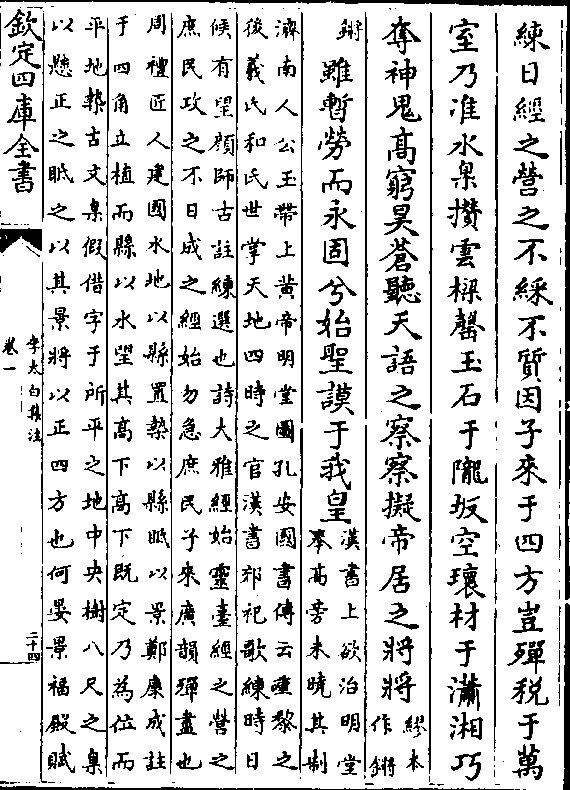 練日經之營之不綵不質因子來于四方豈殫税于萬
室乃准水臬攢雲樑罄玉石于隴坂空瓌材于瀟湘巧
奪神鬼髙窮昊蒼聽天語之察察擬帝居之將將繆本作鏘
鏘雖暫勞而永固兮始聖謨于我皇漢書上欲治明堂奉髙旁未曉其制
濟南人公玉帶上黄帝明堂圖孔安國書傳云重黎之
後羲氏和氏世掌天地四時之官漢書郊祀歌練時日
候有望顔師古註練選也詩大雅經始靈臺經之營之
庶民攻之不日成之經始勿亟庶民子來廣韻殫盡也
周禮匠人建國水地以縣置槷以縣眡以景鄭康成註
于四角立植而縣以水望其髙下髙下既定乃為位而
平地槷古文臬假借字于所平之地中央樹八尺之臬
以懸正之眡之以其景將以正四方也何晏景福殿賦
欽定四庫全書
李太白集注
卷一
二十四